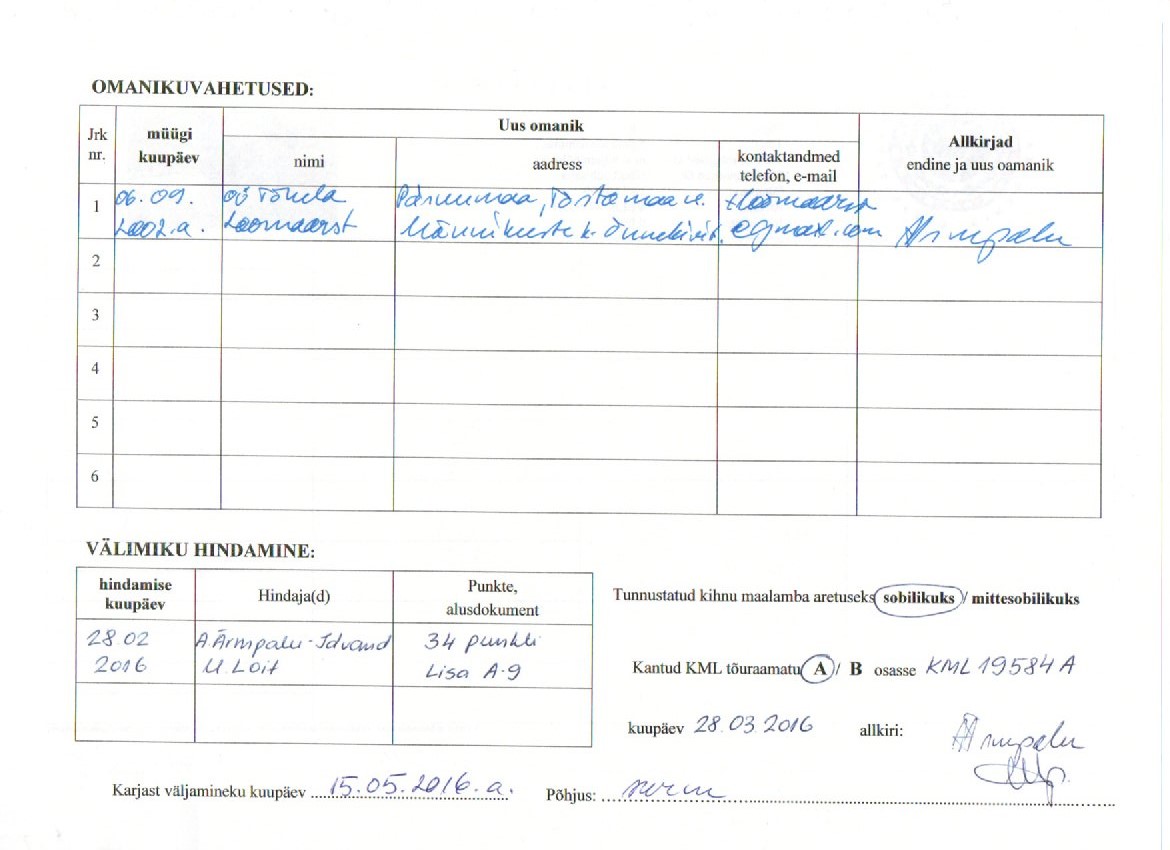 OMANIKUVAHETUSED:
Jrk nr.
müügi kuupäev
Uus omanik
nimi
aadress
kontaktandmed telefon, e-mail
Allkirjad
endine ja uus oamanik
1
06.09.
OÜ Tõhela
Pärnumaa, Tõstamaa v.
Loomaarst
Männikuste k.
2
3
4
5
6
VÄLIMIKU HINDAMINE:
hindamise kuupäev
Hindaja(d)
Punkte, alusdokument
28 02
A.Ärmpalu-Idvand
34 punkti
2016
U. Loit
Lisa A-9
Tunnustatud kihnu maalamba aretuseks sobilikuks / mittesobilikuks
Kantud KML tõuraamatu A / B osasse KML 19584 A
kuupäev 28.03.2016 allkiri: Ärmpalu
Karjast väljamineku kuupäev 15.05.2016.a. Põhjus: